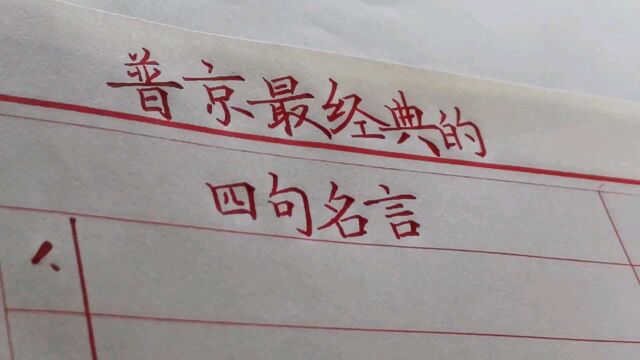 普京最经典的
四句名言